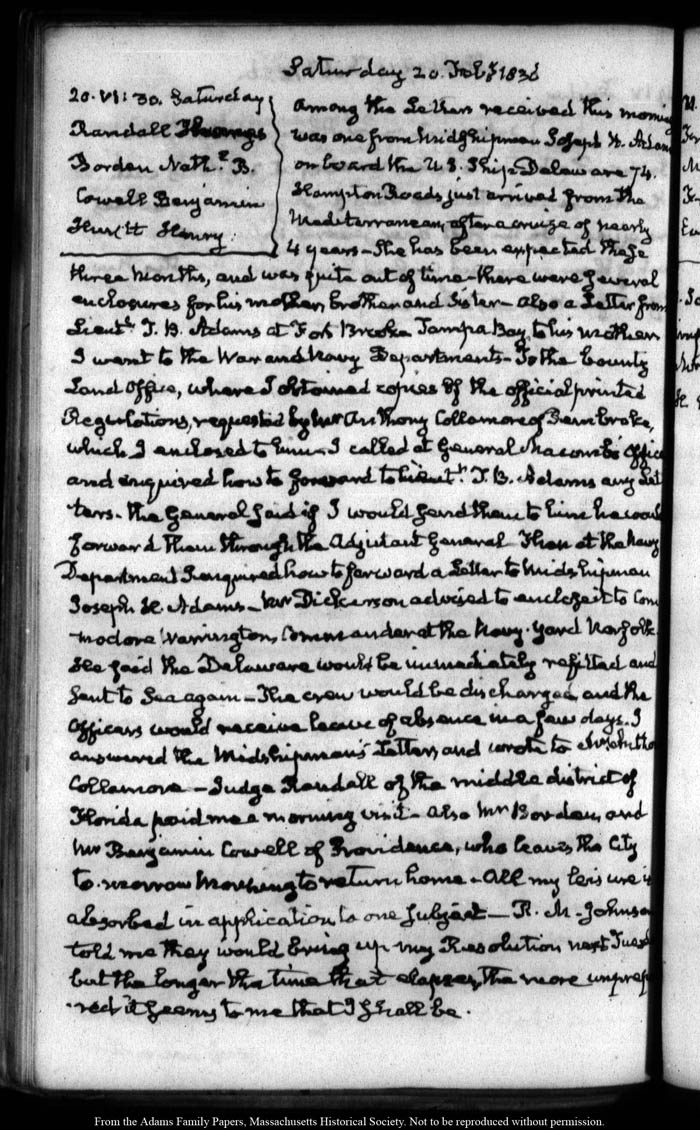 Saturday 20. Feby 1836
20. VI: 30. Saturday
Randall Thomas
Borden Nathl. B.
Cowell Benjamin
Henry
Among the Letters received this morning
was one from Midshipman Joseph H. Adams
on board the U.S. Ship Delaware 74.
Hampton Roads just arrived from the
Mediterranean, after a cruize of nearly
4 years—She has been expected these
three Months, and was quite out of time—there were several
enclosures for his mother, brother and Sister—Also a Letter from
Lieutt. T. B. Adams at Fort Brooke Tampa Bay, to his mother
I went to the War and Navy Departments—To the County
Land Office, where I obtained copies of the official printed
Regulations, requested by Mr Anthony Collamore of Pembroke,
which I enclosed to him—I called at General Macomb's Office
and enquired how to forward to Lieutt. T. B. Adams any Let
ters. the General said if I would send them to him he would
forward them through the Adjutant General Then at the Navy
Department I enquired how to forward a Letter to Midshipman
Joseph H. Adams—Mr Dickerson advised to enclose it to Com
modore Warrington, Commander at the Navy-Yard Norfolk.
He said the Delaware would be immediately refitted and
sent to Sea again—The crew would be discharged and the
Officers would receive leave of absence in a few days. I
answered the Midshipman's Letter, and wrote to
Collamore—Judge Randall of the middle district of
Florida paid me a morning visit—also Mr Borden, and
Mr Benjamin Cowell of Providence, who leaves the City
to-morrow Morning to return home—All my leisure is
absorbed in application to one subject—R. M. Johnson
told me they would bring up my Resolution next Tuesd
but the longer the time that elapses, the more unprep
red it seems to me that I shall be.
From the Adams Family Papers, Massachusetts Historical Society. Not to be reproduced without permission.